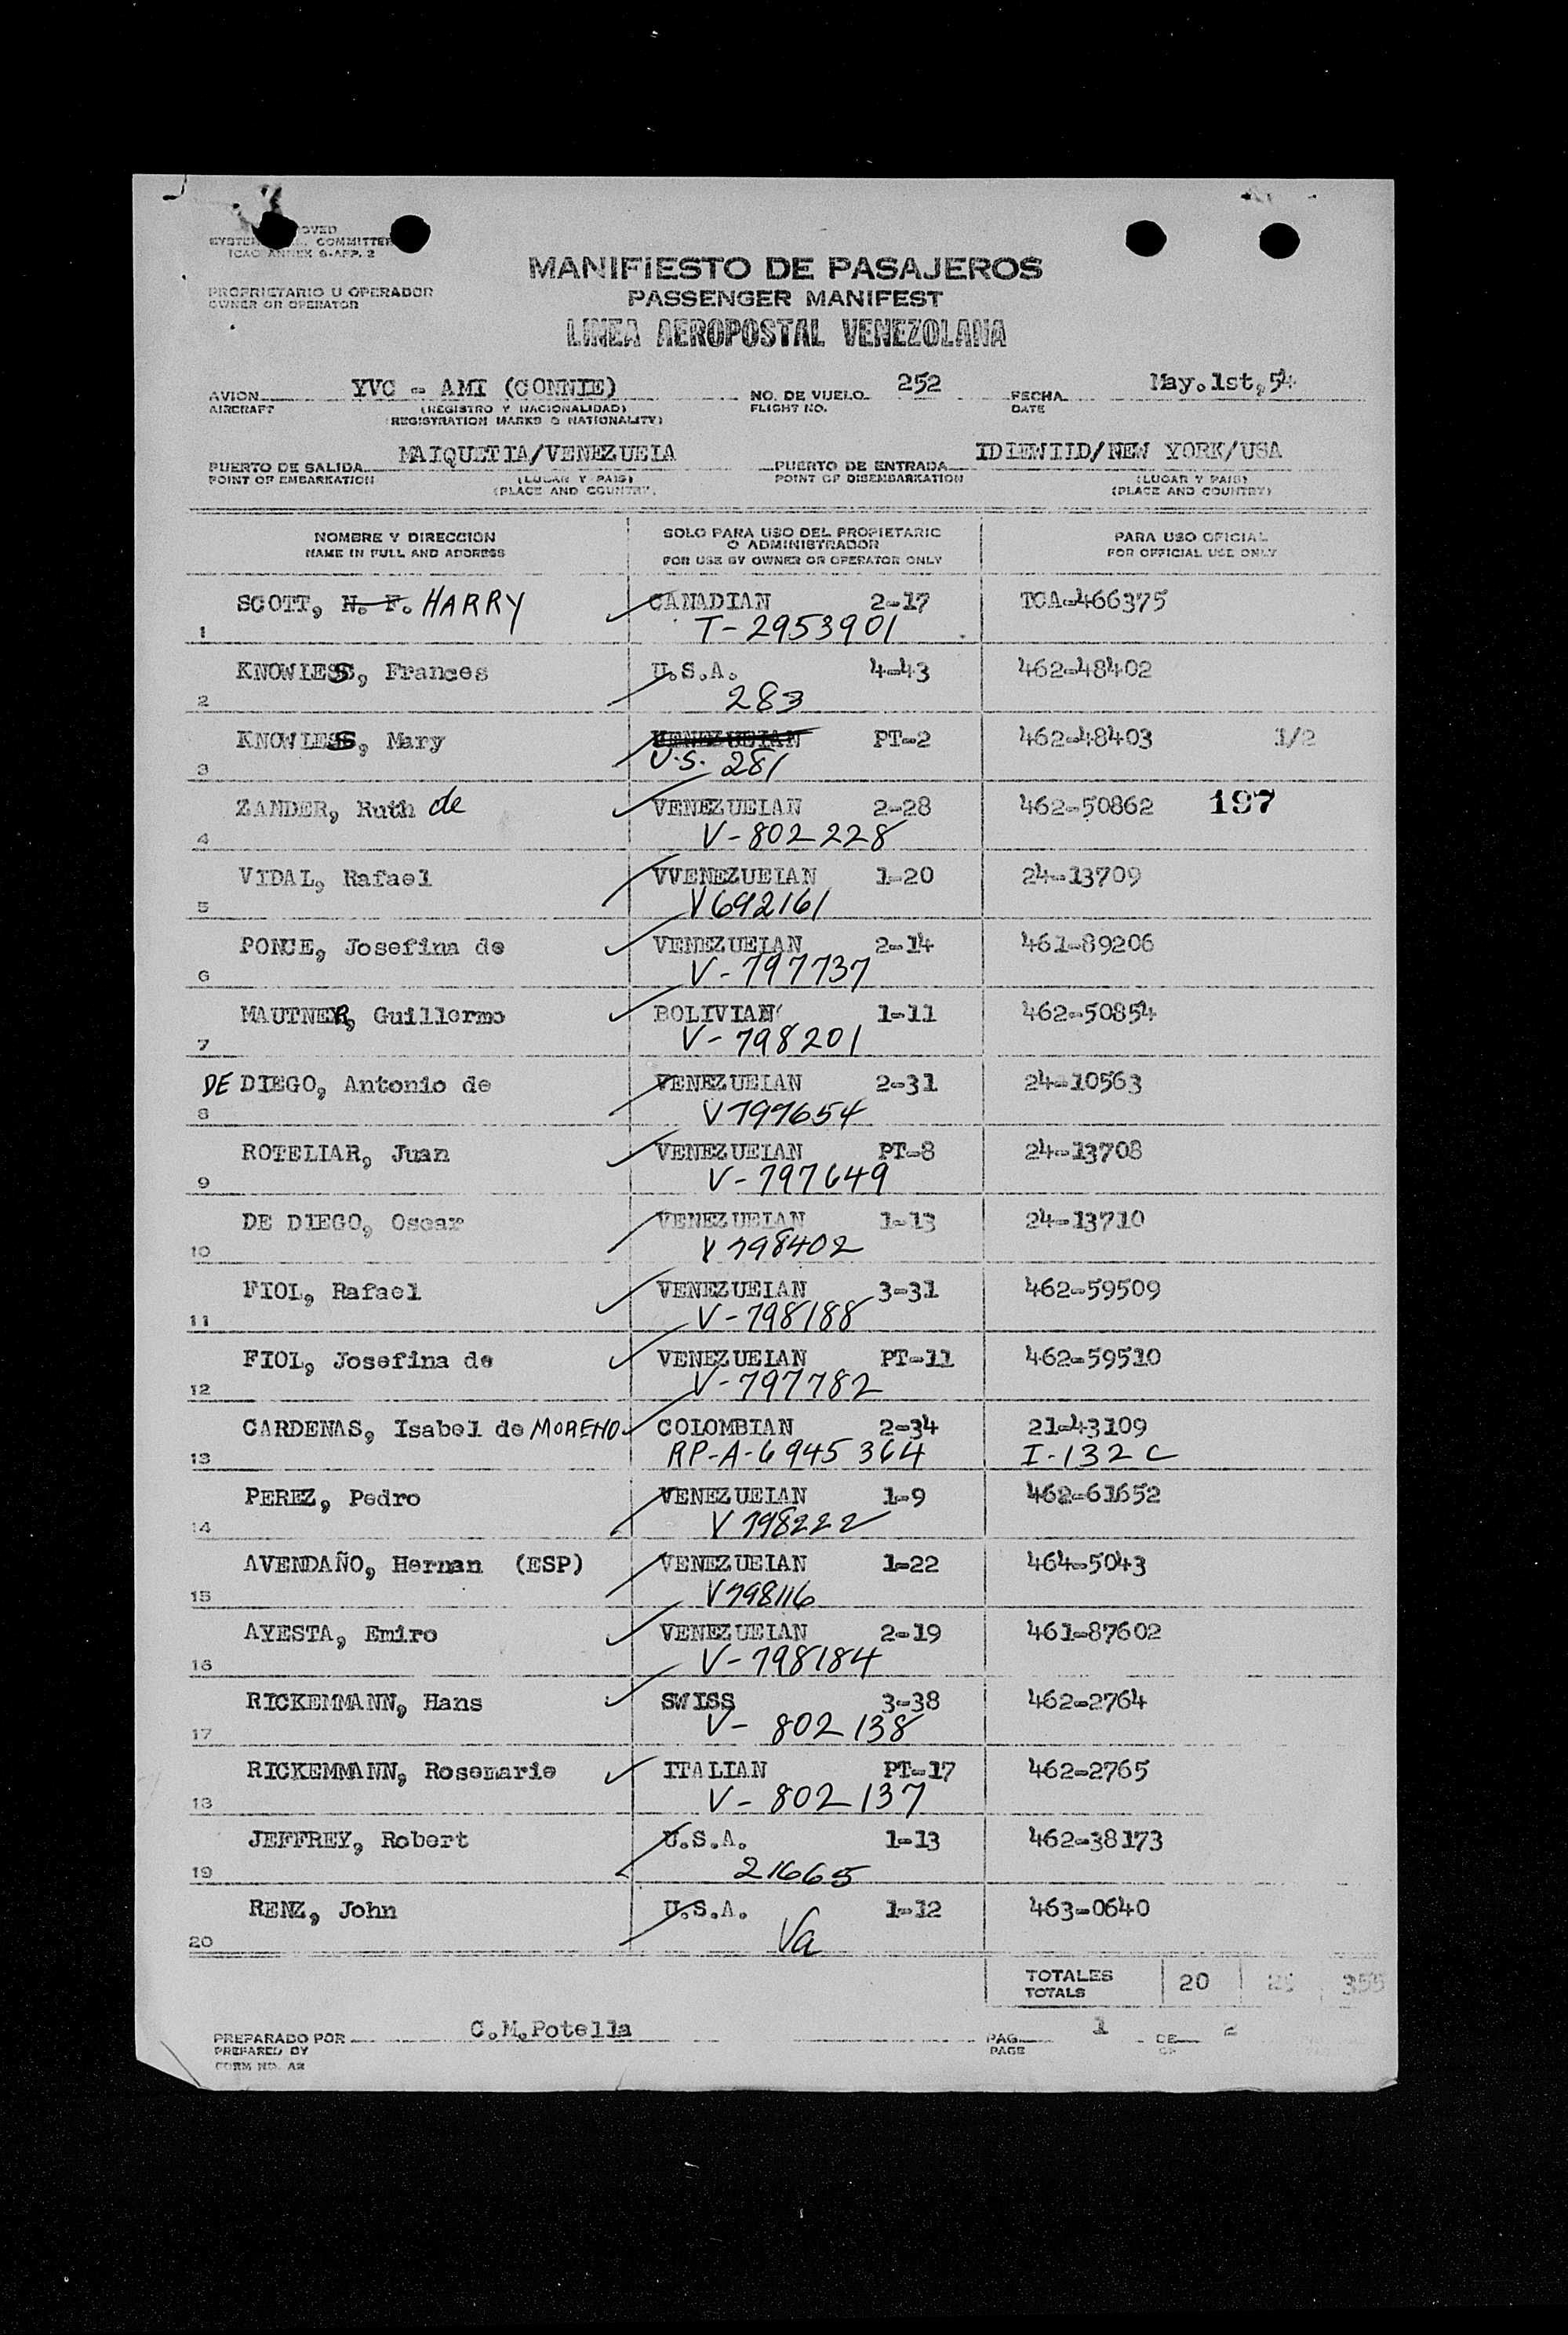 SYSTEM COMMITTEE
ICAO ANNEX 9-APP. 2
MANIFIESTO DE PASAJEROS
PROPRIETARIO U OPERADOR
OWNER OR OPERATOR
PASSENGER MANIFEST
LINEA AEROPOSTAL VENEZOLANA
AVION YVC - AMI (CONNIE) NO. DE VUELO 252 FECHA May. 1st, 54
AIRCRAFT (REGISTRO Y NACIONALIDAD) FLIGHT NO. DATE
(REGISTRATION MARKS & NATIONALITY)
PUERTO DE SALIDA MAIQUETIA/VENEZUELA PUERTO DE ENTRADA IDLEWILD/NEW YORK/USA
POINT OF EMBARKATION (LUGAR Y PAIS) POINT OF DISEMBARKATION (LUGAR Y PAIS)
(PLACE AND COUNTRY) (PLACE AND COUNTRY)
NOMBRE Y DIRECCION SOLO PARA USO DEL PROPIETARIO O ADMINISTRADOR PARA USO OFICIAL
NAME IN FULL AND ADDRESS FOR USE BY OWNER OR OPERATOR ONLY FOR OFFICIAL USE ONLY
SCOTT, H. F. HARRY CANADIAN 2-17 TCA-466375
1 T-2953901
KNOWLESS, Frances U.S.A. 4-43 462-48402
2 283
KNOWLESS, Mary VENEZUELAN PT-2 462-48403 1/2
3 U.S. 281
ZANDER, Ruth de VENEZUELAN 2-28 462-50862 197
4 V-802228
VIDAL, Rafael VVENEZUELAN 1-20 24-13709
5 V692161
PONCE, Josefina de VENEZUELAN 2-14 461-89206
6 V-797737
MAUTNER, Guillermo BOLIVIAN 1-11 462-50854
7 V-798201
DE DIEGO, Antonio de VENEZUELAN 2-31 24-10563
8 V797654
ROTELLAR, Juan VENEZUELAN PT-8 24-13708
9 V-797649
DE DIEGO, Oscar VENEZUELAN 1-13 24-13710
10 V798402
FIOL, Rafael VENEZUELAN 3-31 462-59509
11 V-798188
FIOL, Josefina de VENEZUELAN PT-11 462-59510
12 V-797782
CARDENAS, Isabel de MORENO COLOMBIAN 2-34 21-43109
13 RP-A-6945364 I-132 C
PEREZ, Pedro VENEZUELAN 1-9 462-61652
14 V798222
AVENDAÑO, Hernan (ESP) VENEZUELAN 1-22 464-5043
15 V798116
AYESTA, Emiro VENEZUELAN 2-19 461-87602
16 V-798184
RICKEMMANN, Hans SWISS 3-38 462-2764
17 V- 802138
RICKEMMANN, Rosemarie ITALIAN PT-17 462-2765
18 V- 802137
JEFFREY, Robert U.S.A. 1-13 462-38173
19 21665
RENZ, John U.S.A. 1-12 463-0640
20 Va
TOTALES 20
TOTALS
PREPARADO POR C.M.Potella PAG. 1 DE 2
PREPARED BY PAGE OF
FORM NO. A2